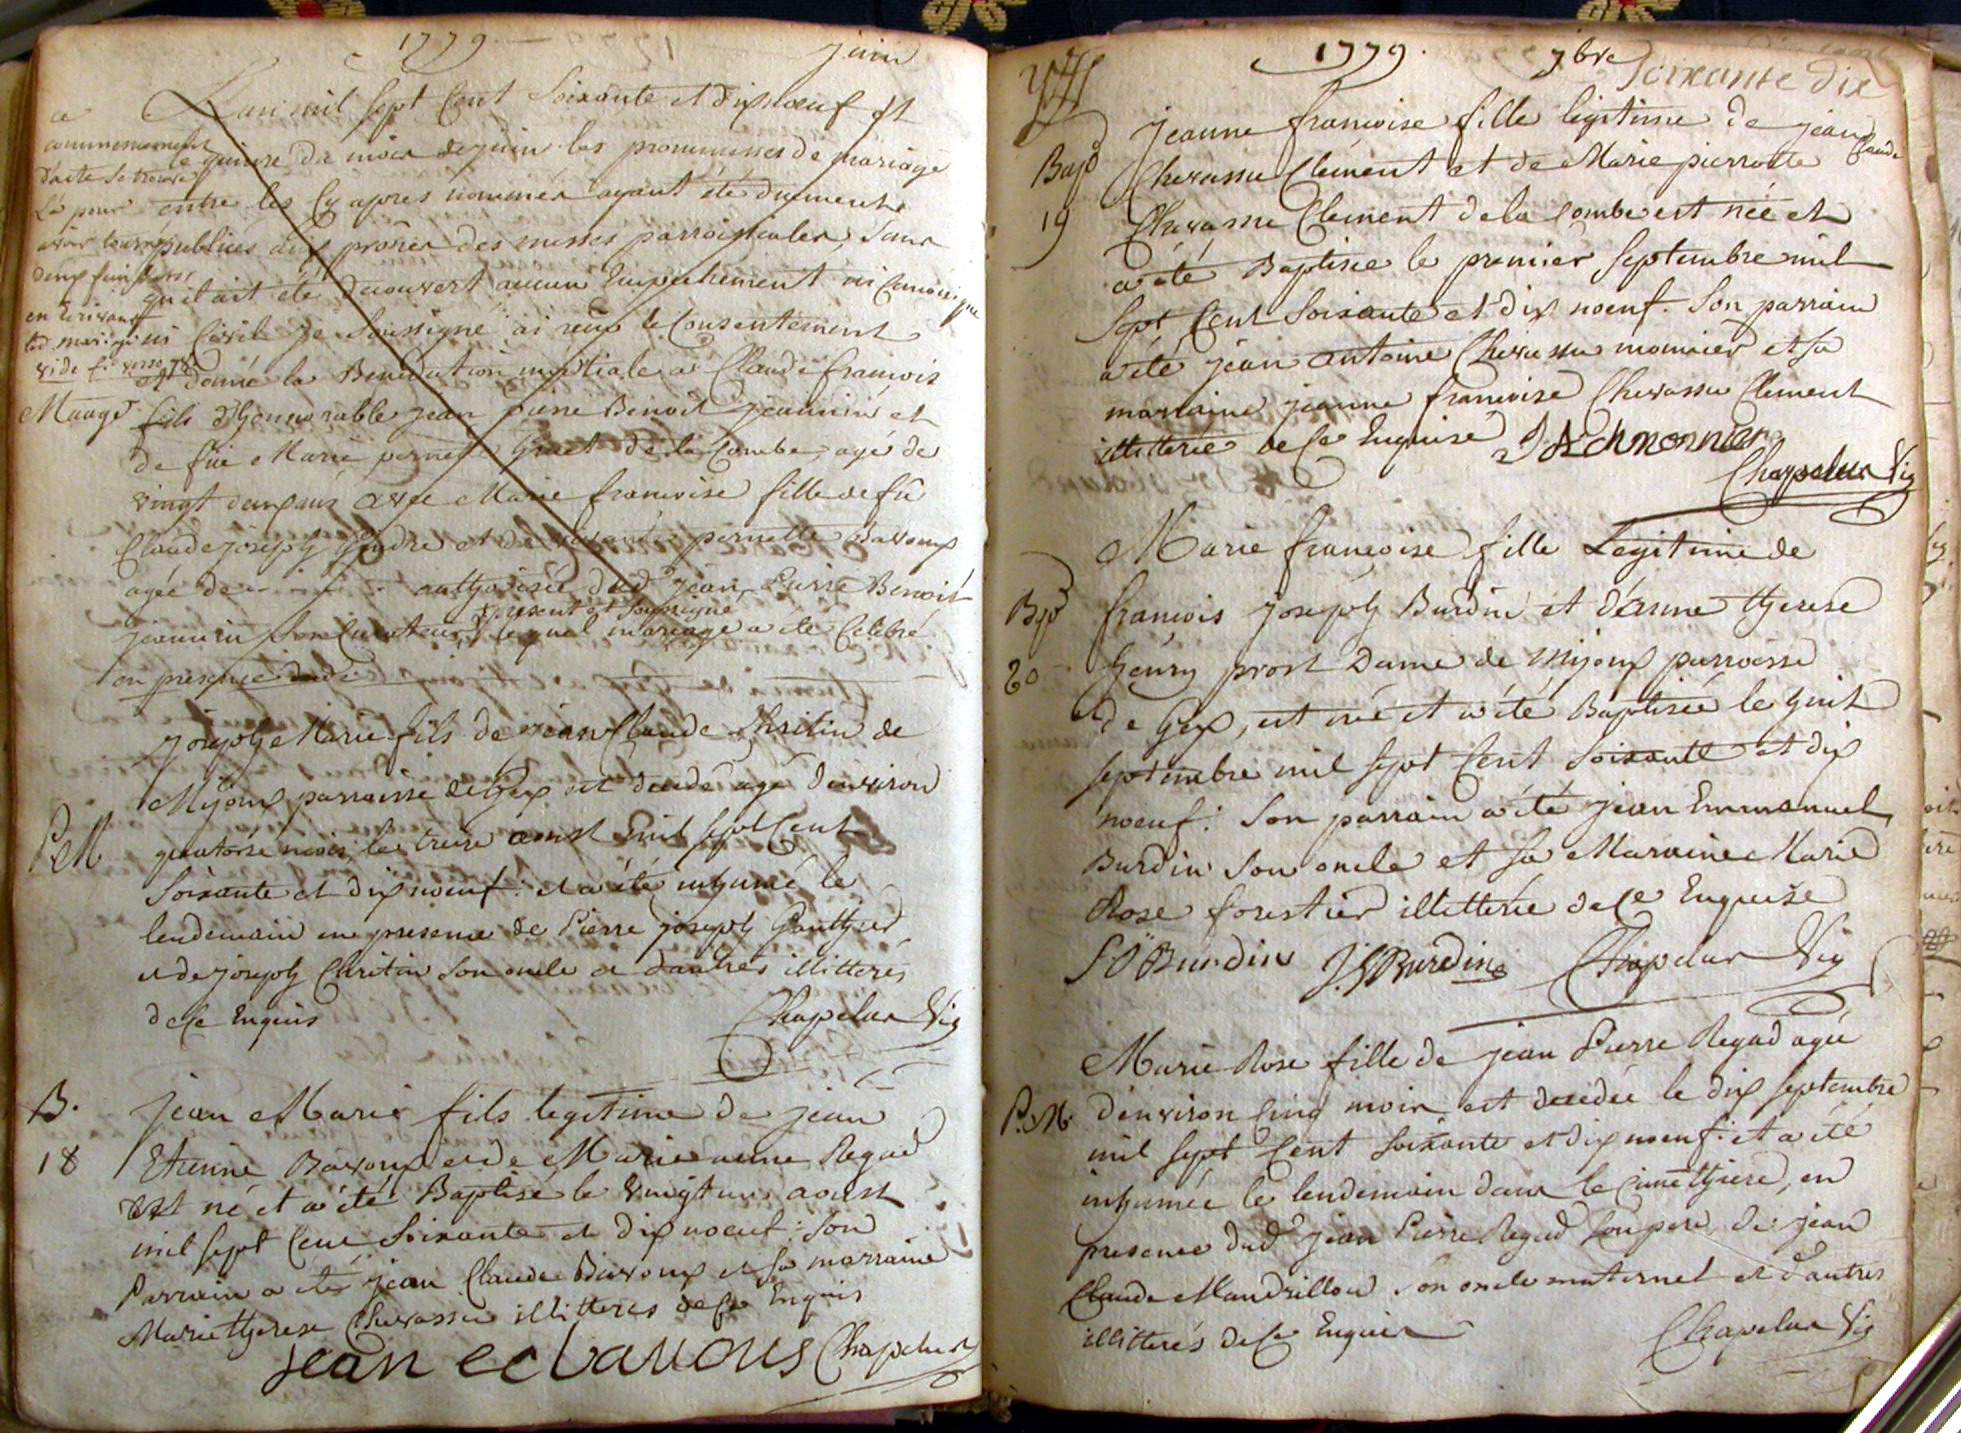 1779. juin
L'an mil sept Cent Soixante et dix noeuf et
le quinze du mois de juin les prommesses de mariage
entre les Cy apres nommés ayant été duement
publiées aux prônes des messes parroissiales, Sans
qu'il ait été decouvert aucun Empechement ni Canonique
ni Civil je Soussigné ai reçu le Consentement
et donné la Benediction nuptiale a Claude françois
fils d'honnorable jean pierre Benoit jeannin et
de füe Marie pernette de la Combe, agé de
vingt deux ans avec Marie françoise fille de fû
Claude joseph et de pernette Bavoux
agée de authorisée dud jean Pierre Benoit
jeannin Son Curateur, present et Soussigné
lequel mariage a été Celebré
en presence de
ce
commencement
d'acte Se trouve
Là pour
avoir tourné
deux feuillets
en Ecrivant
led mariage
vide f.° verso 78
Mariage
joseph Marie fils de jean Claude Chritin de
Mijoux parroisse de Gex est decedé agé d'environ
P.M quatorse mois, le treise aoust mil sept Cent
Soixante et dix noeuf: et a été inhumé le
lendemain en presence de Pierre joseph Gauthier
et de joseph Chritin Son oncle et d'autres illitteres
de Ce Enquis
Chapelur Vic
B. jean Marie fils legitime de jean
18 Etienne Bavoux et de Marie anne Regad
est né et a été Baptisé le vingt un aoust
mil sept Cent Soixante et dix noeuf: Son
Parrain a été jean Claude Bavoux et Sa marraine
Marie therese Chevassu illitteres de Ce Enquis
jean cc bavous Chapelur
1779. 7bre Soixante dix
jeanne françoise fille legitime de jean Claude
Bapt Chevassu Clement et de Marie pierrotte
19 Chevassu Clement de la Combe est née et
a été Baptisée le premier Septembre mil
Sept Cent Soixante et dix noeuf. Son parrain
a été jean antoine Chevassu monnier et Sa
marraine jeanne françoise Chevassu Clement
illitterée de Ce Enquise J A Ch monnier
Chapelur Vic
Marie françoise fille Legitime de
Bapt françois joseph Burdin et d'anne therese
20 henry prost Dame de Mijoux parroisse
de Gex, est née et a été Baptisée le huit
septembre mil sept Cent Soixante et dix
noeuf: Son parrain a été jean Emmanuel
Burdin Son oncle et Sa Maraine Marie
Rose forestier illitterée de Ce Enquise
Burdin Burdin Chapelur Vic
Marie Rose fille de jean Pierre Regad agée
P.M. d'environ Cinq mois est decedée le dix septembre
mil sept Cent Soixante et dix noeuf: et a été
inhumée le lendemain dans le Cimethiere, en
presence dud jean Pierre Regad Son pere, de jean
Claude Mandrillon Son oncle maternel et d'autres
illitterés de Ce Enquis
Chapelur Vic